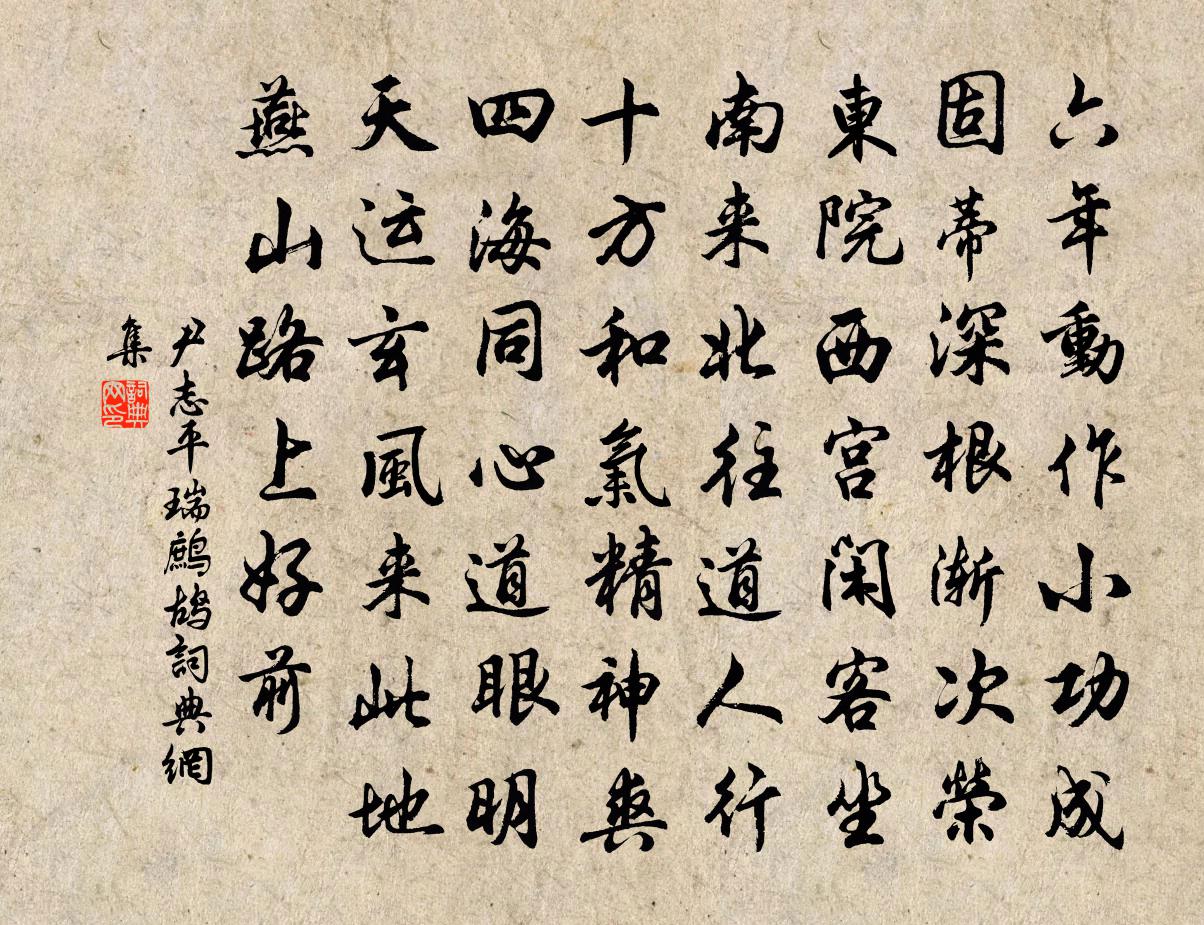 六年動作小功成
固蒂深根漸次榮
東院西宫閑客坐
南来北往道人行
十方和氣精神爽
四海同心道眼明
天运玄風来此地
燕山路上好前
尹志平瑞鷓鴣詞典網
集
詞典网印